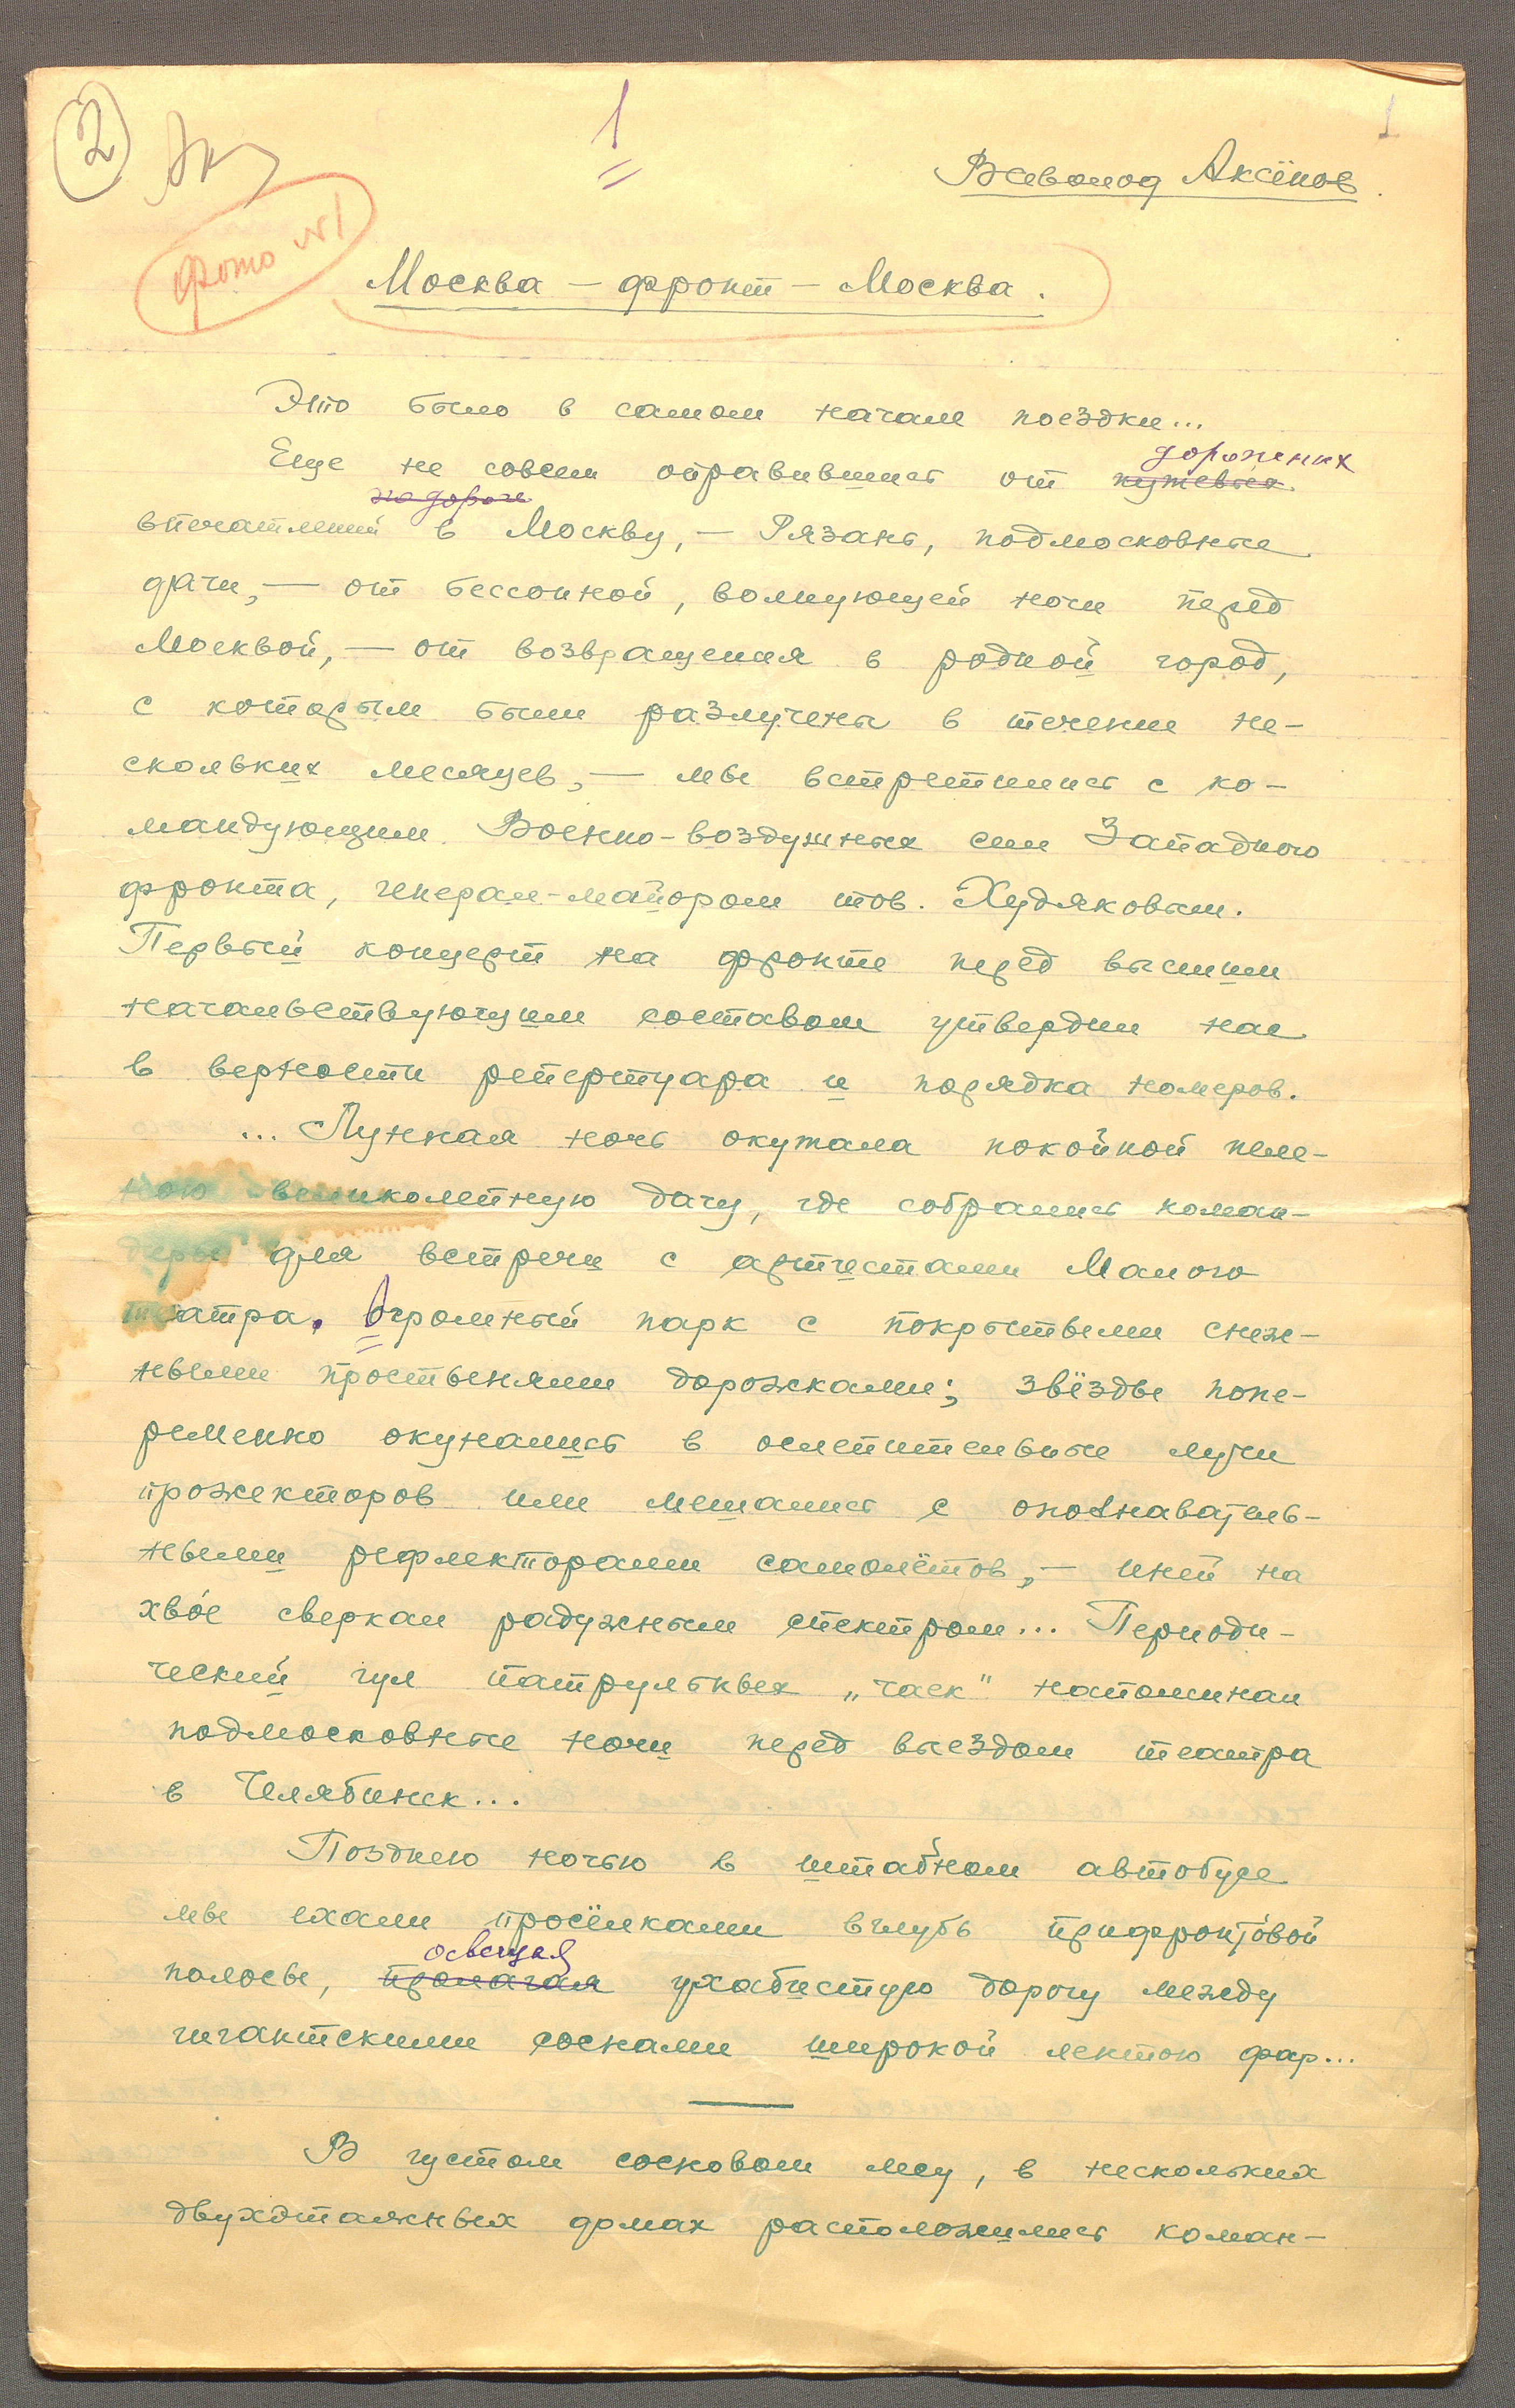 2
1
1
Всеволод Аксёнов
фото №1
Москва – фронт – Москва.
Это было в самом начале поездки...
Еще не совсем оправившись от путевых дорожных
впечатлений по дороге в Москву, – Рязань, подмосковные
дачи, – от бессонной, волнующей ночи перед
Москвой, – от возвращения в родной город,
с которым были разлучены в течении не-
скольких месяцев, – мы встретились с ко-
мандующим Военно-воздушных сил Западного
фронта, генерал-майором тов. Худяковым.
Первый концерт на фронте перед высшим
начальствующим составом утвердил нас
в верности репертуара и порядка номеров.
... Лунная ночь окутала покойной пеле-
ною великолепную дачу, где собрались коман-
диры для встречи с артистами Малого
театра. Огромный парк с покрытыми снеж-
ными простынями дорожками; звёзды попе-
ременно окунались в ослепительные лучи
прожекторов или мешались с опознаватель-
ными рефлекторами самолётов, – иней на
хвое сверкал радужным спектром... Периоди-
ческий гул патрульных „чаек" напоминал
подмосковные ночи перед выездом театра
в Челябинск...
Позднею ночью в штабном автобусе
мы ехали просёлками вглубь прифронтовой
полосы, пролагая освещая ухабистую дорогу между
гигантскими соснами широкой лентою фар...
В густом сосновом лесу, в нескольких
двухэтажных домах расположились коман-